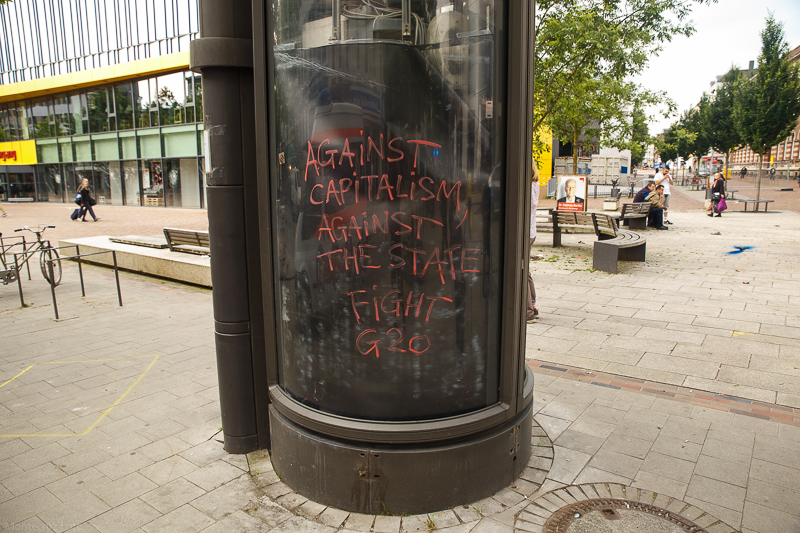 AGAiNST
CAPiTALiSM,
AGAiNST
THE STATE
FiGHT
G20